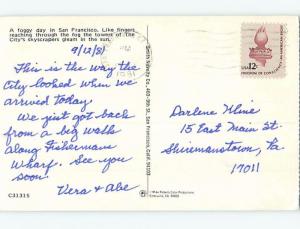 A foggy day in San Francisco. Like fingers
reaching through the fog the towers of The
City's skyscrapers gleam in the sun.
9/12/81
This is the way the
City looked when we
arrived today.
We just got back
from a big walk
along Fishermans
Wharf. See you
soon.
Vera & Abe
C31315
Smith Novelty Co., 460-9th St., San Francisco, Calif. 94103
A FOGGY DAY
USA 12c
FREEDOM OF CONSCIENCE
Darlene Kline
15 East Main St.
Shiremanstown, Pa
17011